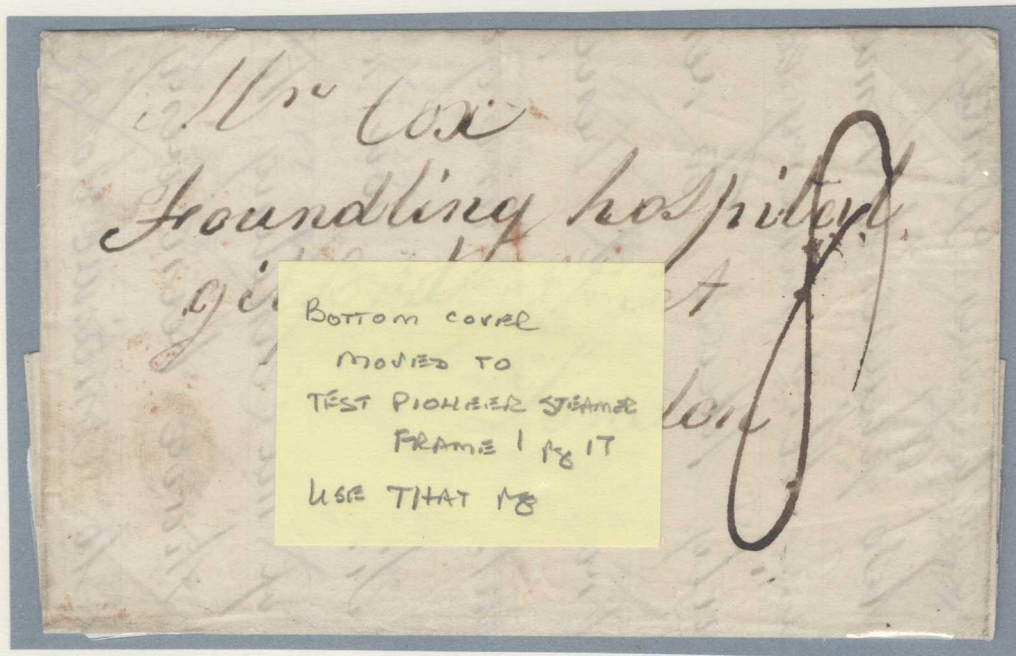 Mr Cox
Foundling hospital
BOTTOM COVER
MOVED TO
TEST PIONEER STEAMER
FRAME 1 pg 17
USE THAT pg
8